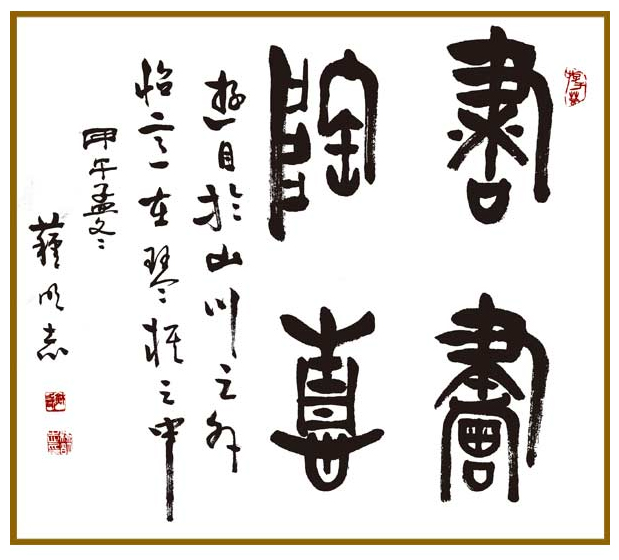 書畫
陶喜
遊目於山川之外
怡言在琴棋之中
甲午孟冬
明志